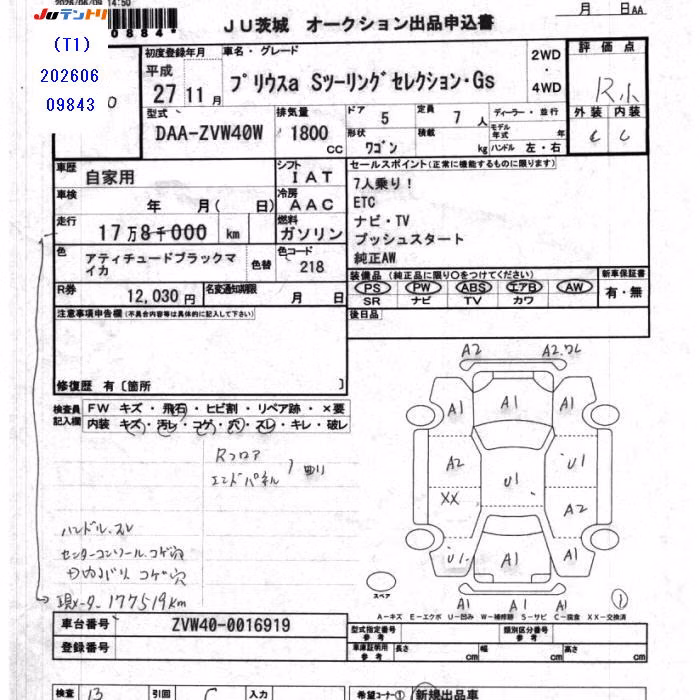 JUテントリ
(T1)
202606
09843
0884*
JU茨城 オークション出品申込書
月 日AA
初度登録年月
平成
27 11 月
車名・グレード
プリウスα Sツーリングセレクション・Gs
2WD・4WD
評価点
R小
外装 内装
C C
型式
DAA-ZVW40W
排気量
1800 cc
ドア 5
定員 7 人
ディーラー・並行
形状 ワゴン
積載 kg
モデル年式 年
ハンドル 左・右
車歴 自家用
シフト IAT
車検 年 月( 日)
冷房 AAC
走行 17万8千000 km
燃料 ガソリン
色 アティチュードブラックマイカ
色替
色コード 218
R券 12,030円
名変通知期限 月 日
セールスポイント(正常に機能するものに限ります)
7人乗り!
ETC
ナビ・TV
プッシュスタート
純正AW
装備品(純正品に限り○をつけてください)
PS PW ABS エアB AW
SR ナビ TV カワ
新車保証書
有・無
注意事項申告欄(不具合内容等は具体的に記入して下さい)
後日品
修復歴 有〔箇所 〕
検査員記入欄
FW キズ・飛石・ヒビ割・リペア跡・×要
内装 キズ・汚レ・コゲ・穴・スレ・キレ・破レ
Rフロア
エンドパネル
曲り
ハンドル.スレ
センターコンソール.コゲ穴
コゲ穴
現メーター 177519km
A2 A2.ワレ
A1 A1 A1
A2 U1 U1
XX A2
U1 A1 A1
A1 A1 A1
スペア
①
A-キズ E-エクボ U-凹み W-補修跡 S-サビ C-腐食 XX-交換済
車台番号 ZVW40-0016919
登録番号
型式指定番号 参考
類別区分番号 参考
車庫証明用 参考
長さ cm 幅 cm 高さ cm
検査 13
引回
入力
希望コーナー① 新規出品車